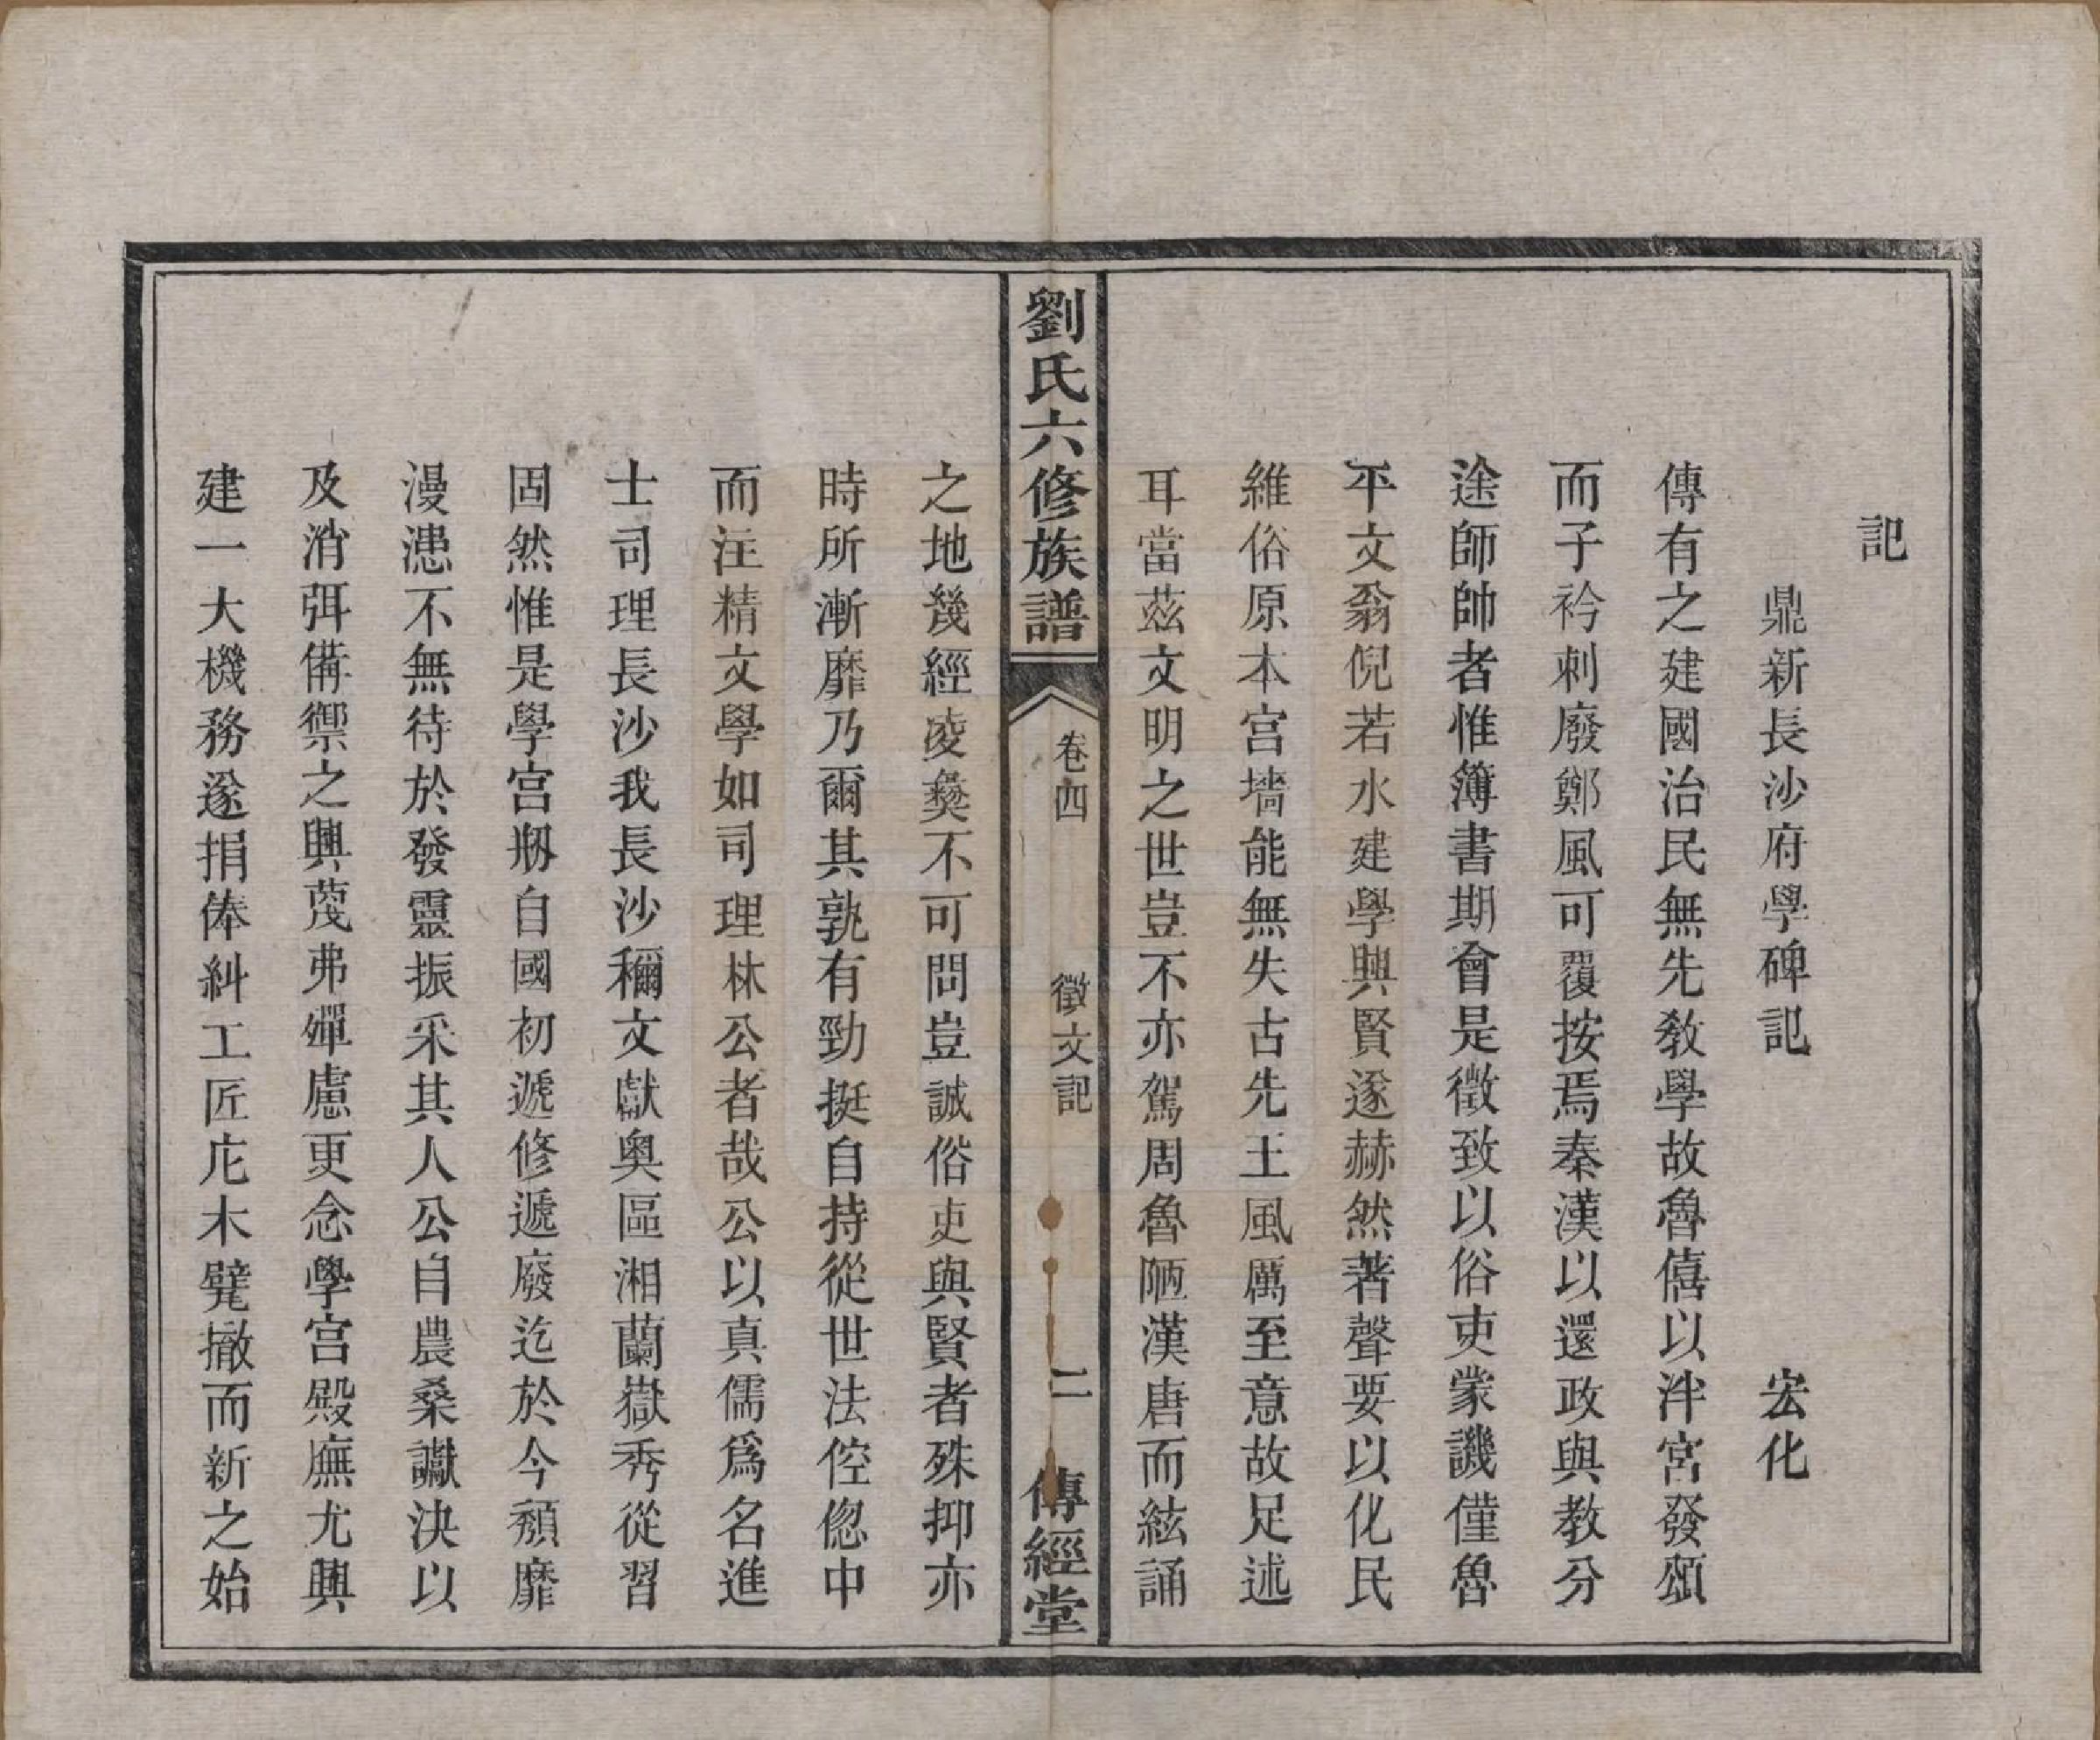 記
鼎新長沙府學碑記 宏化
傳有之建國治民無先教學故魯僖以泮宮發頌
而子衿刺廢鄭風可覆按焉秦漢以還政與教分
途師帥者惟簿書期會是徵致以俗吏蒙譏僅魯
平文翁倪若水建學興賢遂赫然著聲要以化民
維俗原本宮墻能無失古先王風厲至意故足述
耳當茲文明之世豈不亦駕周魯陋漢唐而絃誦
劉氏六修族譜 卷四 徵文記 二 傳經堂
之地幾經凌彝不可問豈誠俗吏與賢者殊抑亦
時所漸靡乃爾其孰有勁挺自持從世法倥傯中
而注精文學如司理林公者哉公以真儒爲名進
士司理長沙我長沙稱文獻奧區湘蘭嶽秀從習
固然惟是學宮剏自國初遞修遞廢迄於今頹靡
漫漶不無待於發靈振采其人公自農桑讞決以
及消弭備禦之興蔑弗殫慮更念學宮殿廡尤興
建一大機務遂捐俸糾工匠庀木甓撤而新之始